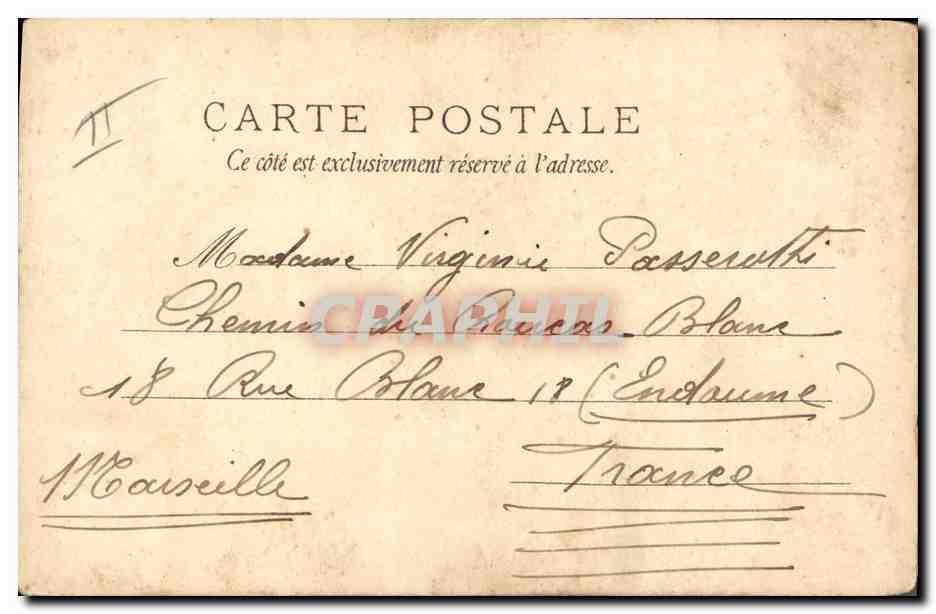 II
CARTE POSTALE
Ce côté est exclusivement réservé à l'adresse.
Madame Virginie
Chemin du Roucas-Blanc
CPARAMA CRAPHIL
18 Rue Blanc 18 (Endoume)
Marseille
France